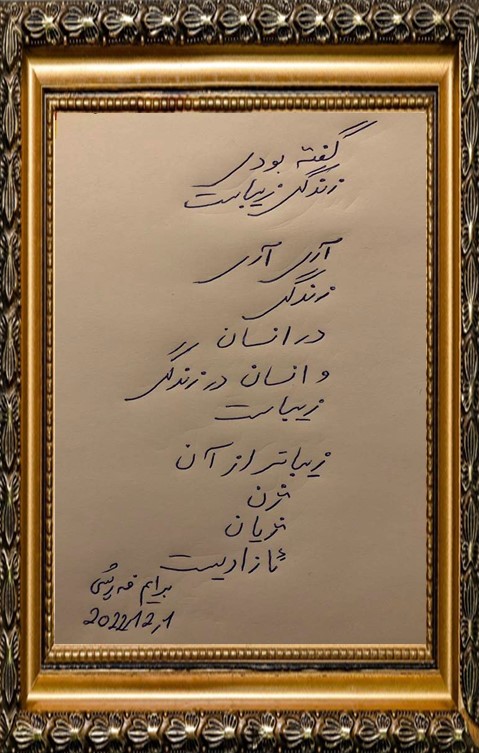 گفته بودی
زندگی زیباست
آری آری
زندگی
در انسان
و انسان در زندگی
زیباست
زیباتر از آن
ژن
ژیان
ئازادیست
برایم
2022/12/1